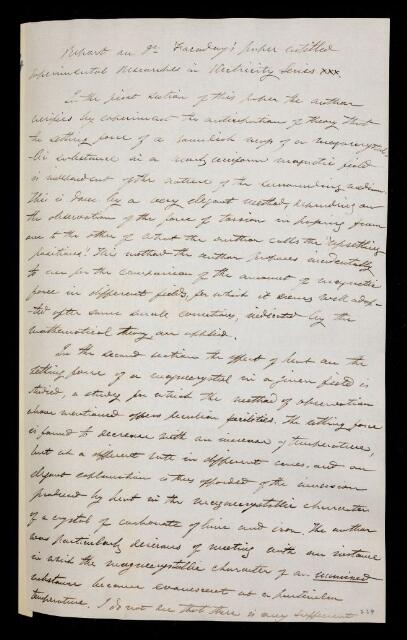 Report on Dr. Faraday's paper entitled
Experimental Researches in Electricity Series XXX.
In the first section of this paper the author
verifies by experiment the anticipation of theory that
the setting force of a roundish mass of a magnecrystal-
-lic substance in a nearly uniform magnetic field
is independent of the nature of the surrounding medium.
This is done by a very elegant method, depending on
the observations of the force of torsion in passing from
one to the other of what the author calls the "upsetting
positions". This method the author proposes incidentally
to use for the comparison of the amount of magnetic
force in different fields, for which it seems well adap-
-ted after some simple corrections, indicated by the
mathematical theory are applied.
In the second section the effect of heat on the
setting force of a magnecrystal in a given field is
studied, a study for which the method of observation
above mentioned offers peculiar facilities. The setting force
is found to decrease with an increase of temperature,
but at a different rate in different cases, and an
elegant explanation is thus afforded of the inversion
produced by heat in the magnecrystallic character
of a crystal of carbonate of lime and iron. The author
was particularly desirous of meeting with an instance
in which the magnecrystallic character of an
substance became evanescent at a particular
temperature. I do not see that there is any sufficient